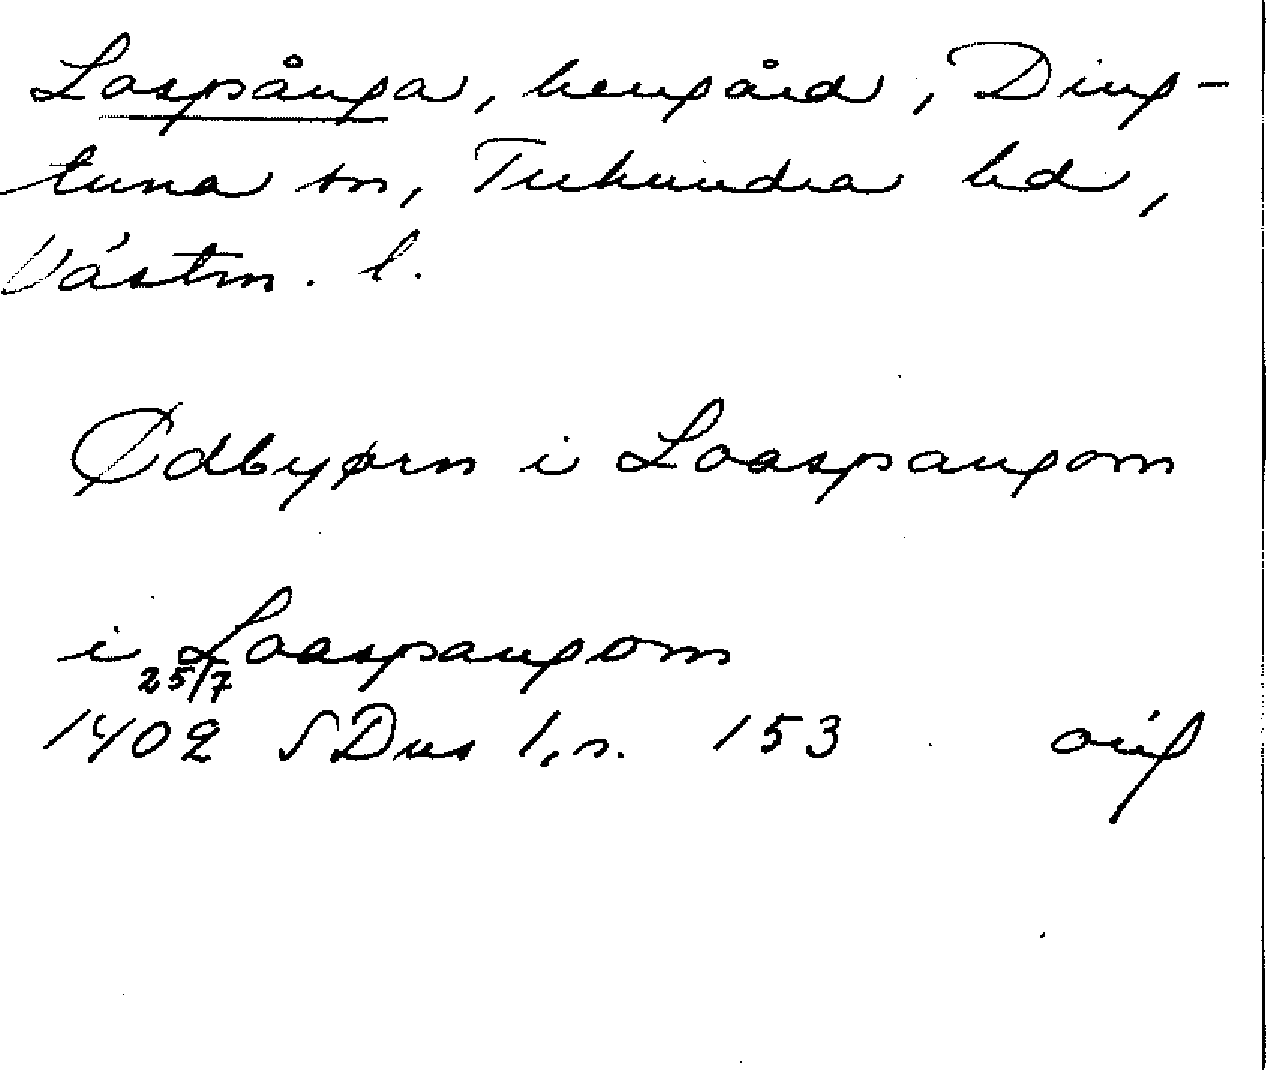 Laspånga, herrgård, Ding-
tuna sn, Tuhundra hd,
Västm. l.
Ødbyørn i Laaspangom
i Laaspangom
25/7
1402 SDns 1, s. 153 orig